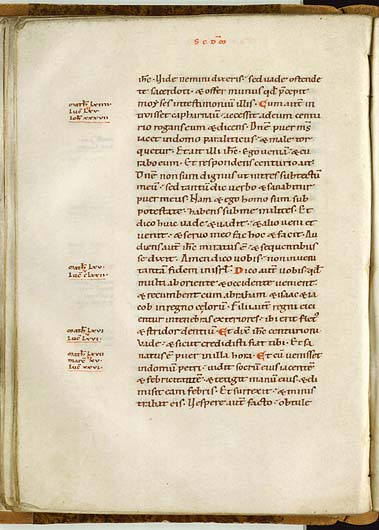 S C D M
ihc. Vide nemini dixeris. sed vade ostende
te sacerdoti. & offer munus qđ p̄cepit
moyses intestimonium illis. Cum autē in
troisset capharnaum. accessit adeum centu
rio rogans eum & dicens. Dnē puer m̄s
iacet indomo paraliticus & male tor
quetur. Et ait illi ihc. Ego veniā & cu
rabo eum. Et respondens centurio ait.
Dnē non sum dignus ut intres subtectū
meū. sed tantū dic verbo & sanabitur
puer meus. Nam & ego homo sum sub
potestate. habens subme milites. Et
dico huic vade & vadit. & alio veni et
venit. & servo meo fac hoc & facit. Au
diens autē ihc miratus ē. & sequentibus
se dixit. Amen dico vobis. non inveni
tantā fidem in isrl̄. Dico autē vobis. qđ
multi aboriente & occidente venient.
& recumbent cum abraham & isaac & ia
cob inregno celorū. Filii autē regni eici
entur intenebras exteriores. ibi erit flet'
& stridor dentiū. Et dix̄ ihc centurioni
Vade. & sicut credidisti fiat tibi. Et sa
natus ē puer inilla hora. Et cū venisset
indomū petri. vidit socrū eius iacentē
& febricitantē. & tetigit manū eius. & di
misit eam febris. Et surrexit. & minis
trabat eis. Vespere autē facto. obtule